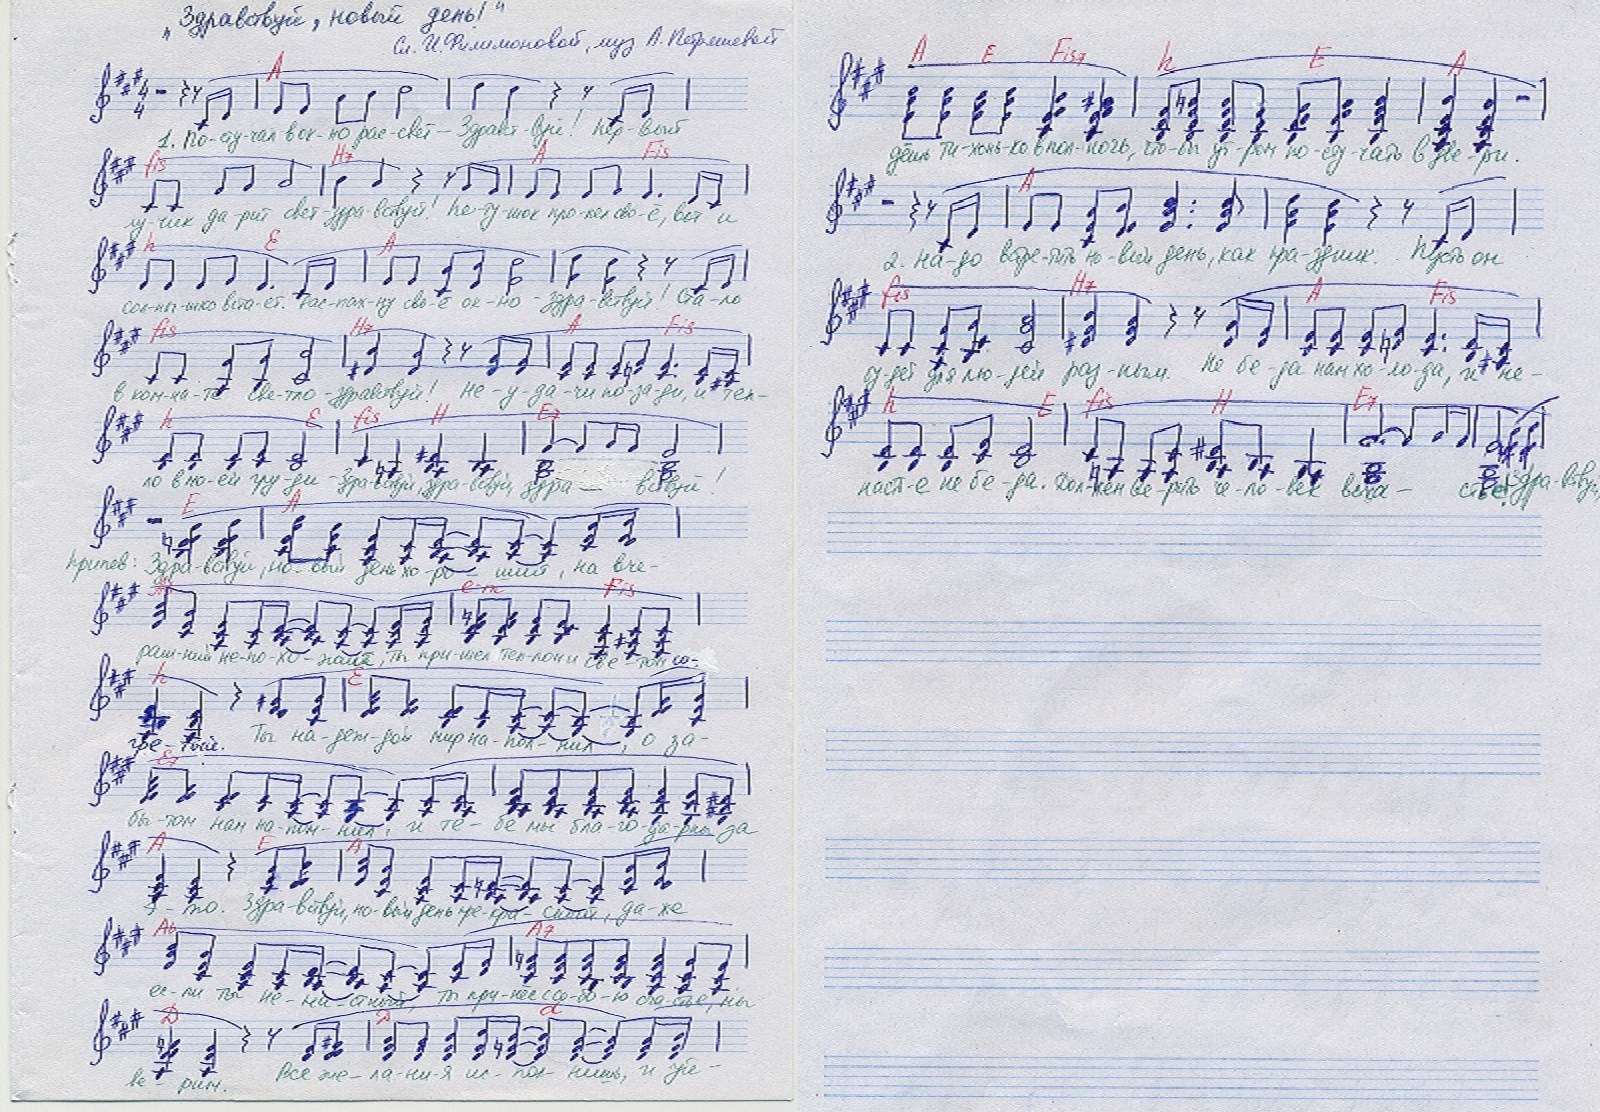 "Здравствуй, новый день!"
Сл. И. Филимоновой, муз А. Петряшевой
A
4 4
1. По-сту-чал в ок-но рас-свет- Здравст-вуй! Пер-вый
fis H7 A Fis
лу-чик да-рит свет-здра-вствуй! Пе-ту-шок про-пел сво-ё, вот и
h E A
сол-ны-шко вста-ёт. Рас-пах-ну сво-ё ок-но-здра-вствуй! Ста-ло
fis H7 A Fis
в ком-на-те све-тло-здравствуй! Не-у-да-чи по-за-ди, и теп-
h E fis H E7
ло в мо-ей гру-ди-здра-вствуй, здра-вствуй, здра- вствуй!
E A
Припев: Здра-вствуй, но-вый день хо-ро-ший, на вче-
e-m Fis
раш-ний не-по-хо-жий, ты при-шел теп-лом и све-том со-
h E
гре-тый. Ты на-деж-дой мир на-пол-нил, о за-
E7
бы-том нам на-пом-нил, и те-бе мы бла-го-да-рны за
A E A
э-то. Здра-вствуй, но-вый день пре-кра-сный, да-же
A6 A7
ес-ли ты не-на-стный, ты при-нес с со-бо-ю сча-стье, мы
D D d
ве-рим. Все же-ла-ни-я ис-пол-нишь, и уй-
A E Fis7 h E A
дёшь ти-хонь-ко в пол-ночь, что-бы ут-ром по-сту-чать в две-ри.
A
2. На-до встре-тить но-вый день, как пра-здник. Пусть он
fis H7 A Fis
бу-дет для лю-дей раз-ным. Не бе-да нам хо-ло-да, и не-
h E fis H E7
наст-е не бе-да. Дол-жен ве-рить че-ло-век в сча- стье. Здра-вствуй,